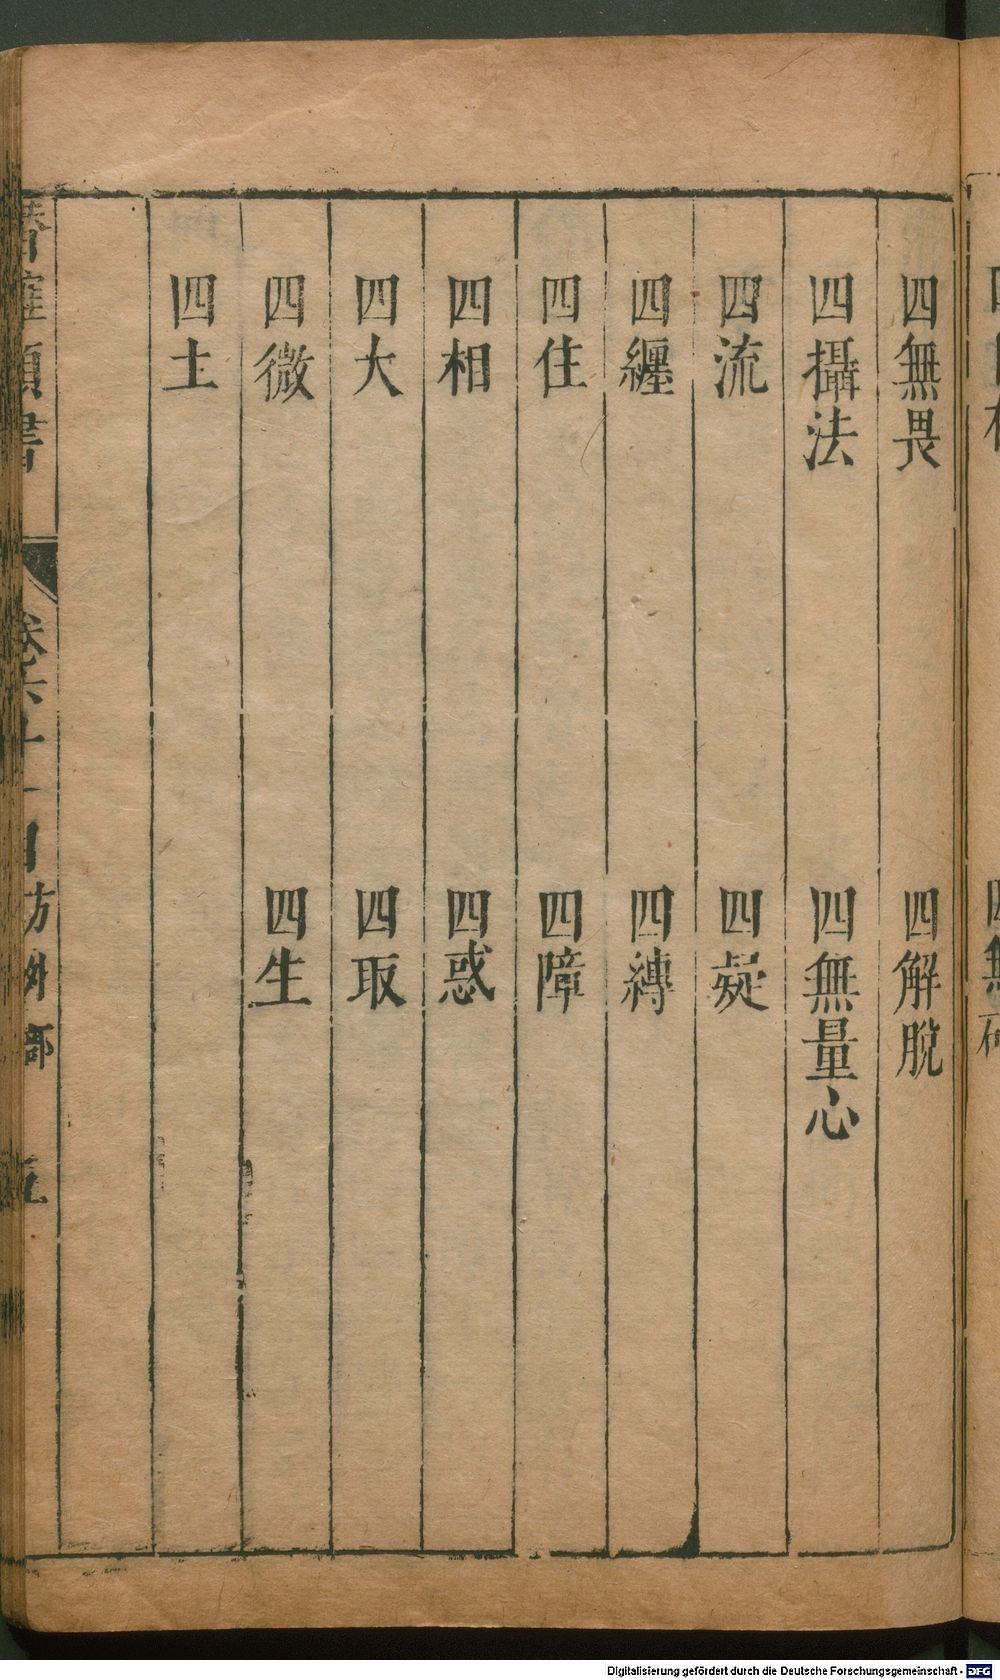 四無畏　四解脫
四攝法　四無量心
四流　四疑
四纏　四縛
四住　四障
四相　四惑
四大　四取
四微　四生
四土
類書　卷六十一目　方外部　五
Digitalisierung gefördert durch die Deutsche Forschungsgemeinschaft - DFG